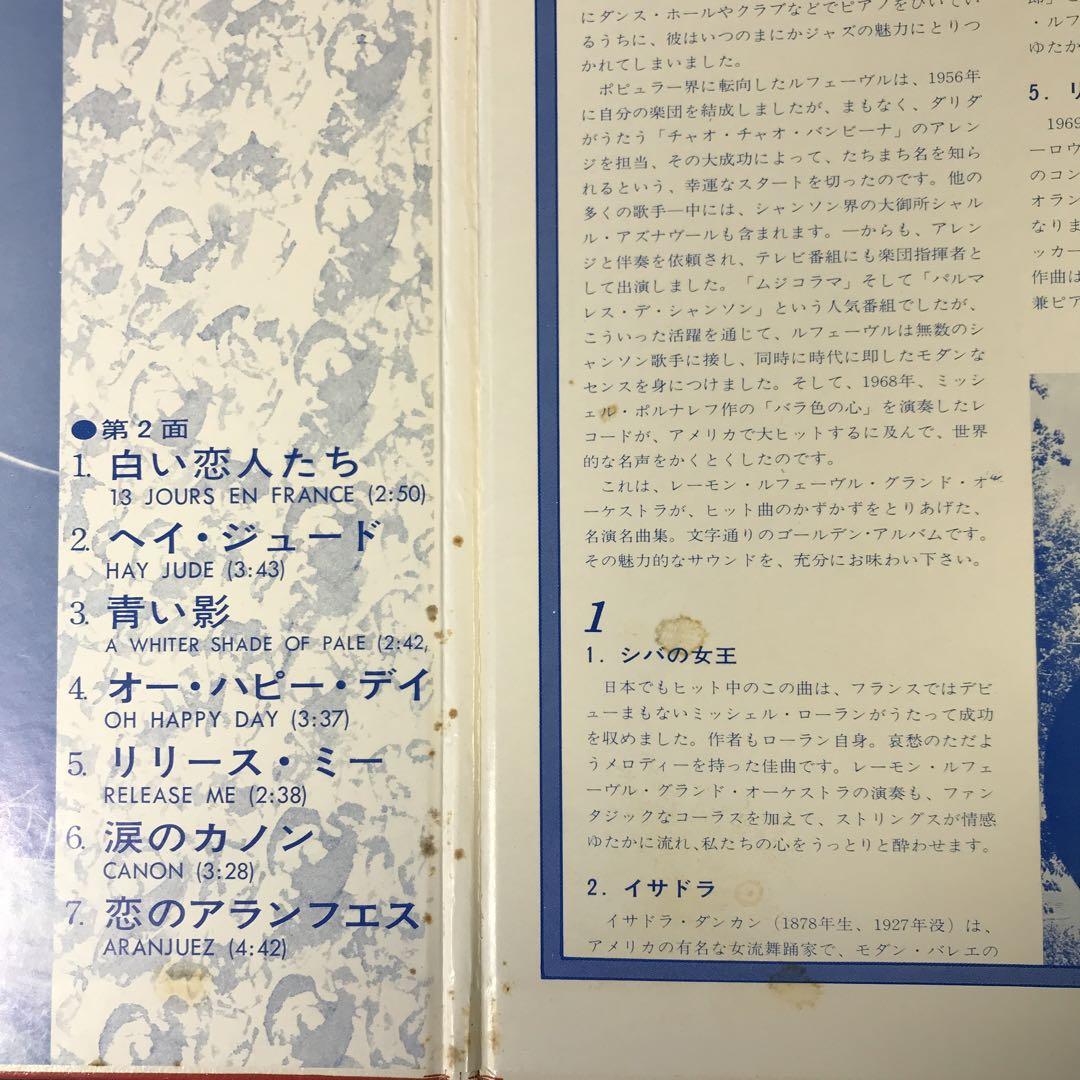 ●第2面
1. 白い恋人たち
13 JOURS EN FRANCE (2:50)
2. ヘイ・ジュード
HAY JUDE (3:43)
3. 青い影
A WHITER SHADE OF PALE (2:42,
4. オー・ハピー・デイ
OH HAPPY DAY (3:37)
5. リリース・ミー
RELEASE ME (2:38)
6. 涙のカノン
CANON (3:28)
7. 恋のアランフエス
ARANJUEZ (4:42)
にダンス・ホールやクラブなどでピアノをひいてい
るうちに、彼はいつのまにかジャズの魅力にとりつ
かれてしまいました。
ポピュラー界に転向したルフェーヴルは、1956年
に自分の楽団を結成しましたが、まもなく、ダリダ
がうたう「チャオ・チャオ・バンビーナ」のアレン
ジを担当、その大成功によって、たちまち名を知ら
れるという、幸運なスタートを切ったのです。他の
多くの歌手—中には、シャンソン界の大御所シャル
ル・アズナヴールも含まれます。—からも、アレン
ジと伴奏を依頼され、テレビ番組にも楽団指揮者と
して出演しました。「ムジコラマ」そして「パルマ
レス・デ・シャンソン」という人気番組でしたが、
こういった活躍を通じて、ルフェーヴルは無数のシ
ャンソン歌手に接し、同時に時代に即したモダンな
センスを身につけました。そして、1968年、ミッシ
ェル・ポルナレフ作の「バラ色の心」を演奏したレ
コードが、アメリカで大ヒットするに及んで、世界
的な名声をかくとくしたのです。
これは、レーモン・ルフェーヴル・グランド・オ
ーケストラが、ヒット曲のかずかずをとりあげた、
名演名曲集。文字通りのゴールデン・アルバムです。
その魅力的なサウンドを、充分にお味わい下さい。
1
1. シバの女王
日本でもヒット中のこの曲は、フランスではデビ
ューまもないミッシェル・ローランがうたって成功
を収めました。作者もローラン自身。哀愁のただよ
うメロディーを持った佳曲です。レーモン・ルフェ
ーヴル・グランド・オーケストラの演奏も、ファン
タジックなコーラスを加えて、ストリングスが情感
ゆたかに流れ、私たちの心をうっとりと酔わせます。
2. イサドラ
イサドラ・ダンカン（1878年生、1927年没）は、
アメリカの有名な女流舞踊家で、モダン・バレエの
・ルフ
ゆたか
5. リ
1969
ーロウ
のコン
オラン
なりま
ッカー
作曲は
兼ピア